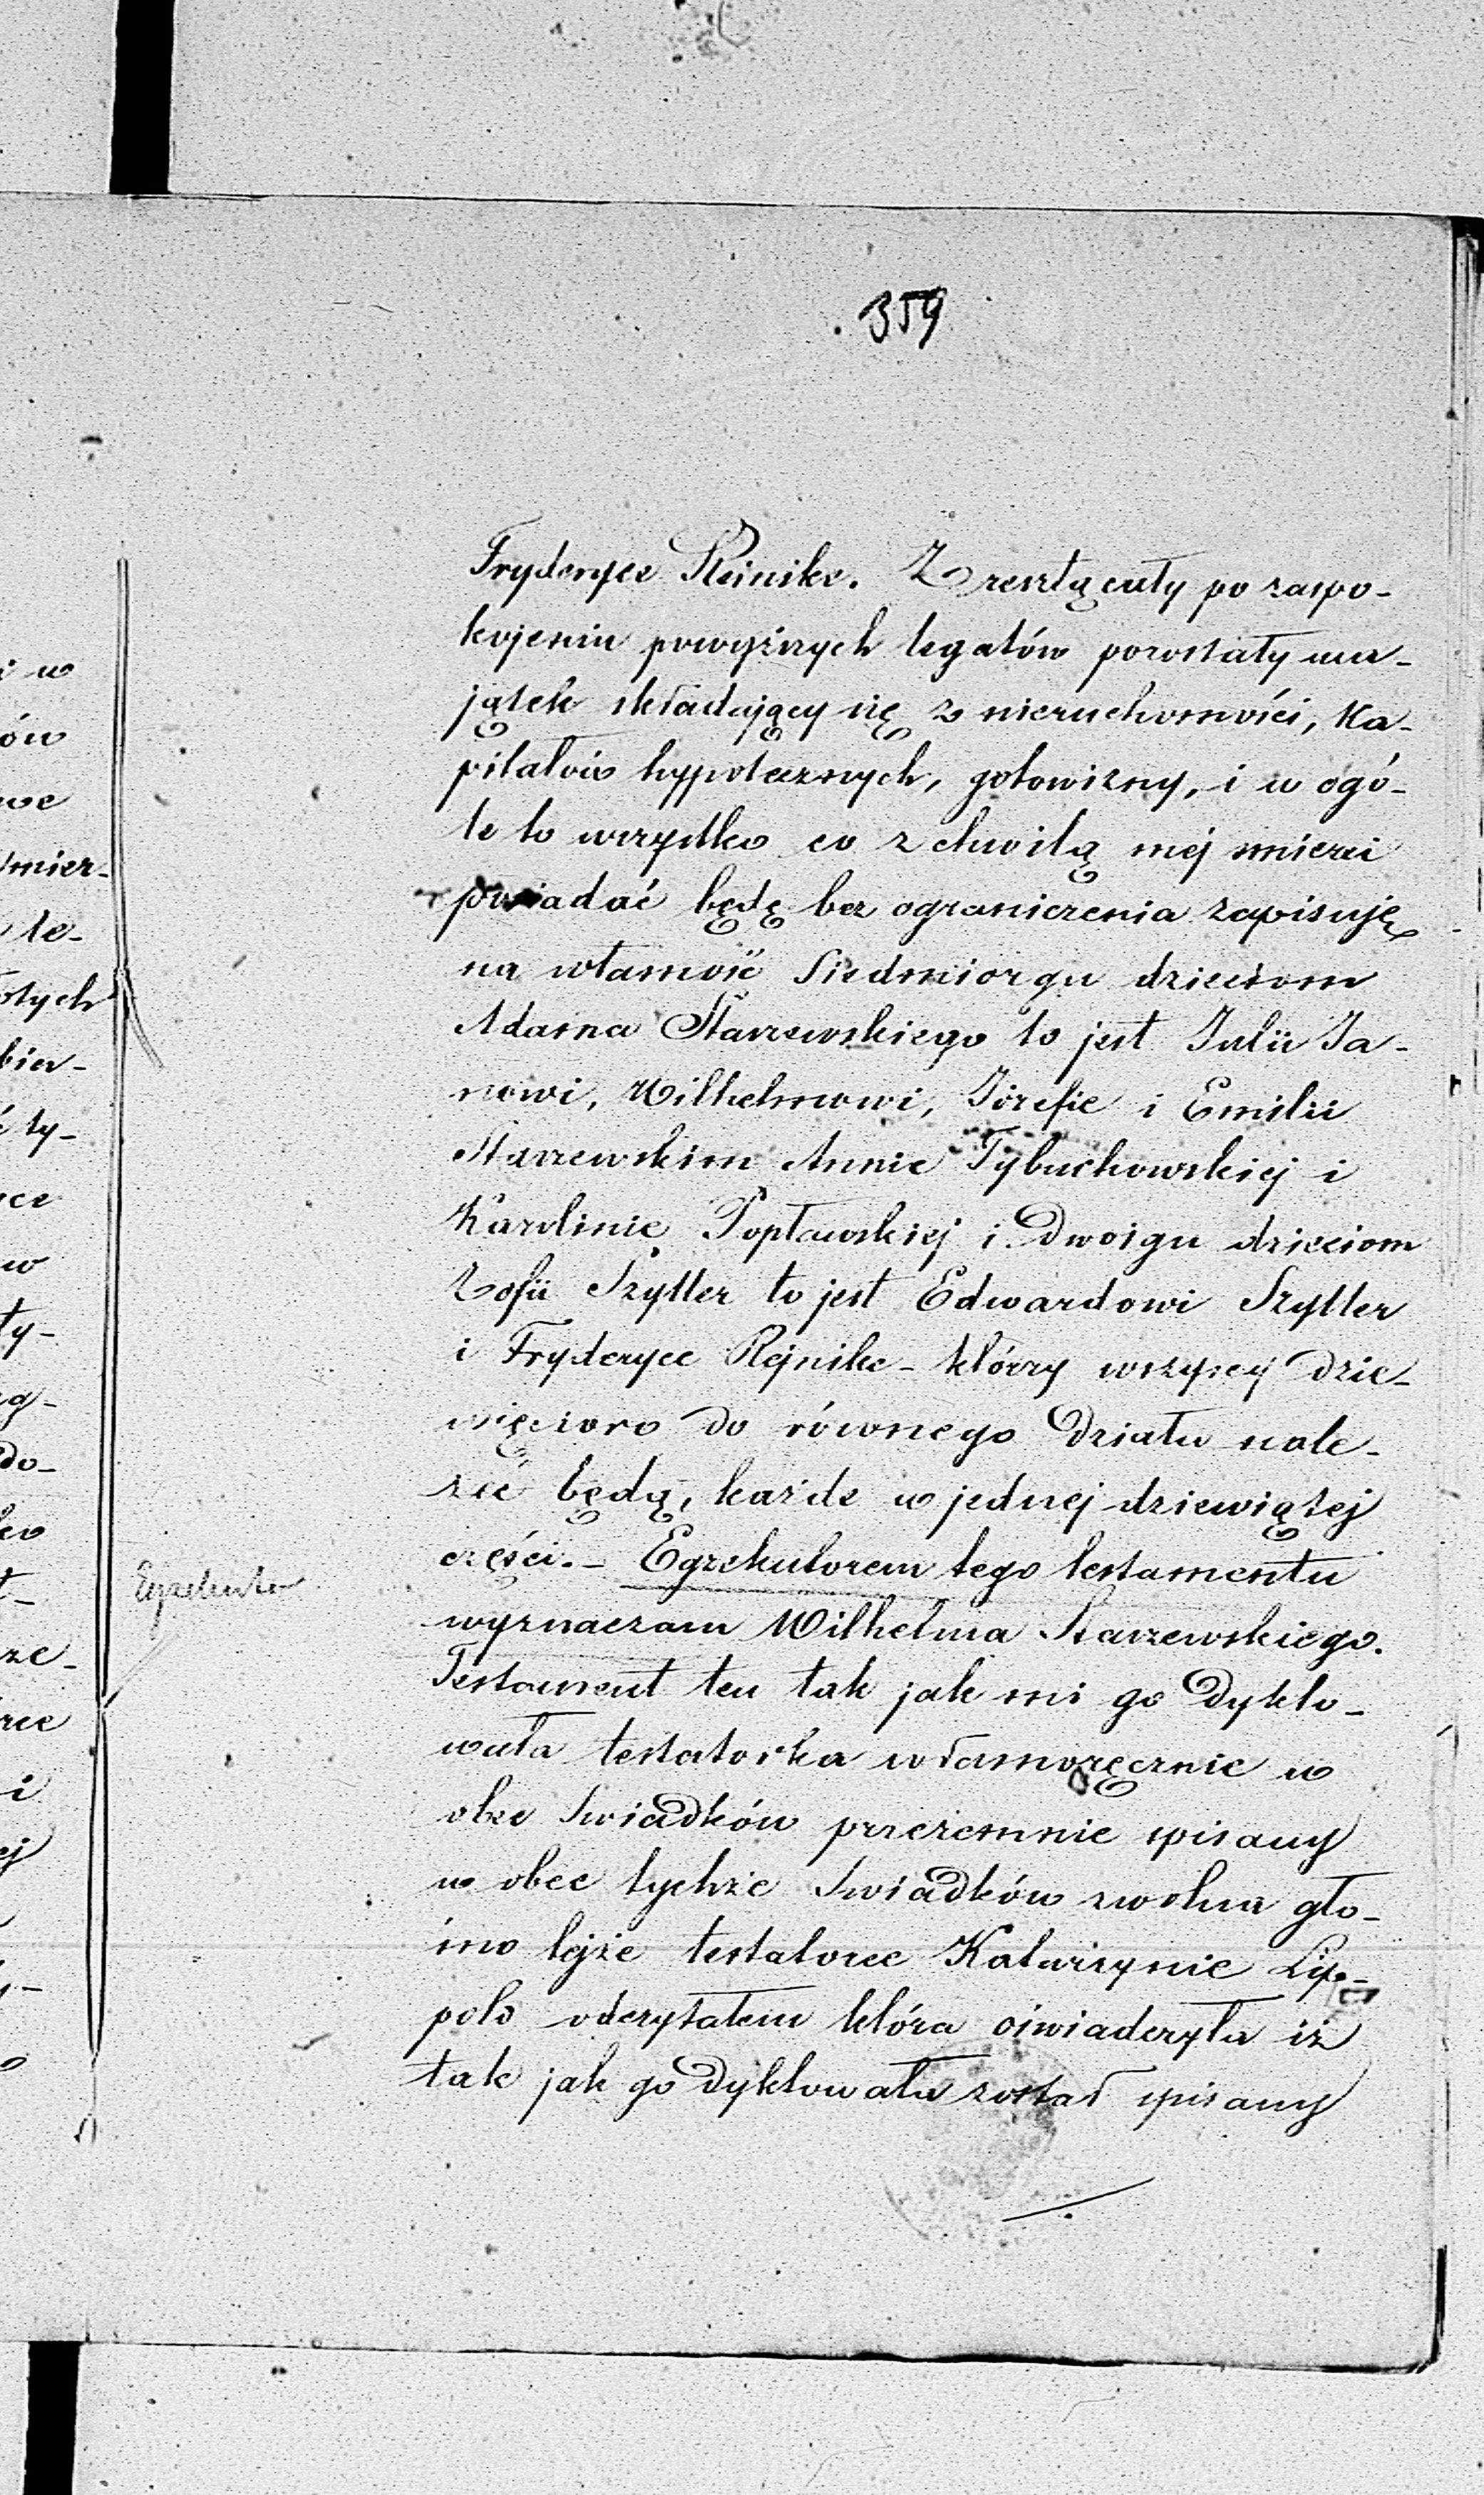 359
Fryderyce Reinike. Z resztą cały po zaspo-
kojeniu powyższych legatów pozostały ma-
jątek składający się z nieruchomości, Ka-
pitałów hypotecznych, gotowizny, i w ogó-
le to wszystko co z chwilą mej śmierci
posiadać będę bez ograniczenia zapisuję
na własność Siedmiorgu dzieciom
Adama Starzewskiego to jest Julii Ja-
nowi, Wilhelmowi, Józefie i Emilii
Starzewskim Annie Tybuchowskiej i
Karolinie Popławskiej i Dwoigu dzieciom
Zofii Szytler to jest Edwardowi Szytler
i Fryderyce Rejnike - którzy wszyscy Dzie-
więcioro do równego Działu nale-
żeć będą, każde w jednej dziewiątej
części. - Egzekutorem tego testamentu
wyznaczam Wilhelma Starzewskiego.
Testament ten tak jak mi go Dykto-
wała testatorka własnoręcznie w
obec Swiadków przezemnie spisany
w obec tychże Swiadków zwolna gło-
śno tejże testatorce Katarzynie Lip-
pold odczytałem która oświadczyła iż
tak jak go Dyktowała został spisany
Egzekutor
i w
ów
we
śmier-
le-
otych
bier-
ć ty-
w
ty-
do-
ze-
i
ej